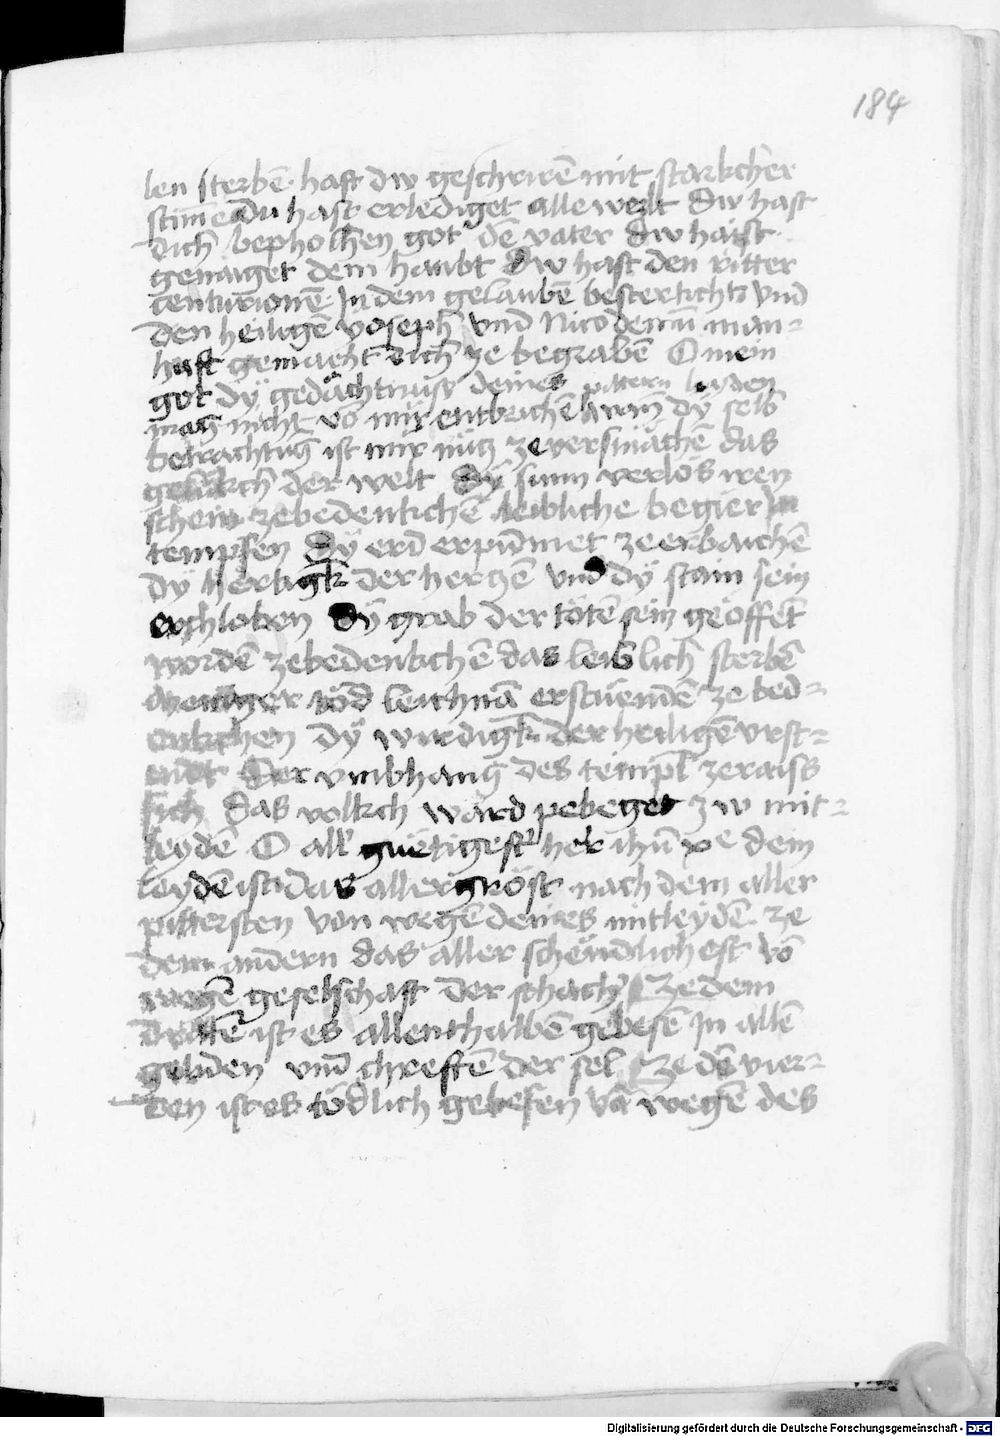 184
len sterbē hast dw geschrirē mit starkcher
stim̄e Du hast erlediget alle welt dw hast
dich bepholhen got dē vater dw haist
genaiget dem haubt Dw hast den ritter
centurionē In dem gelaubē bestertichtz vnd
den heiligē yoseph vnd Nicodemū man-
haft gemacht dich ze begrabē O mein
got dÿ gedächtnüss deines pittern leyden
mag nicht vō mir entbrichē wan̄ dÿ selb
betrachtūg ist mir nütz ze versmächē das
gelükch der welt Dÿ sunn verlös iren
schein zebedeutichē leibliche begier In
tempfen Dÿ erd erpidmet ze erbaichē
dÿ hertigk der hertzē vnd dÿ stain sein
erchloben dÿ grab der tötē sein geöffet
wordē zebedeutichē das leiblich sterbē
tōd leichnā erstuendē ze bed-
eutichen dÿ wirdigk der heiligē vrst-
endt Der vmbhang des templ zeraiss
sich das volkch ward pebeget zw mit-
leydē O all güetigest her ihū xpe dein
leydē ist das aller gröst nach dem aller
pittersten von wegē deines mitleydē ze
dem andern das aller schendlichest vō
wegē geselschaft der schachr Ze dem
drittē ist es allenthalbē gebesē In allē
geliden vnd chreftē der sel Ze dē vier-
den ist es tödlich gebesen vā wegē des
Digitalisierung gefördert durch die Deutsche Forschungsgemeinschaft - DFG